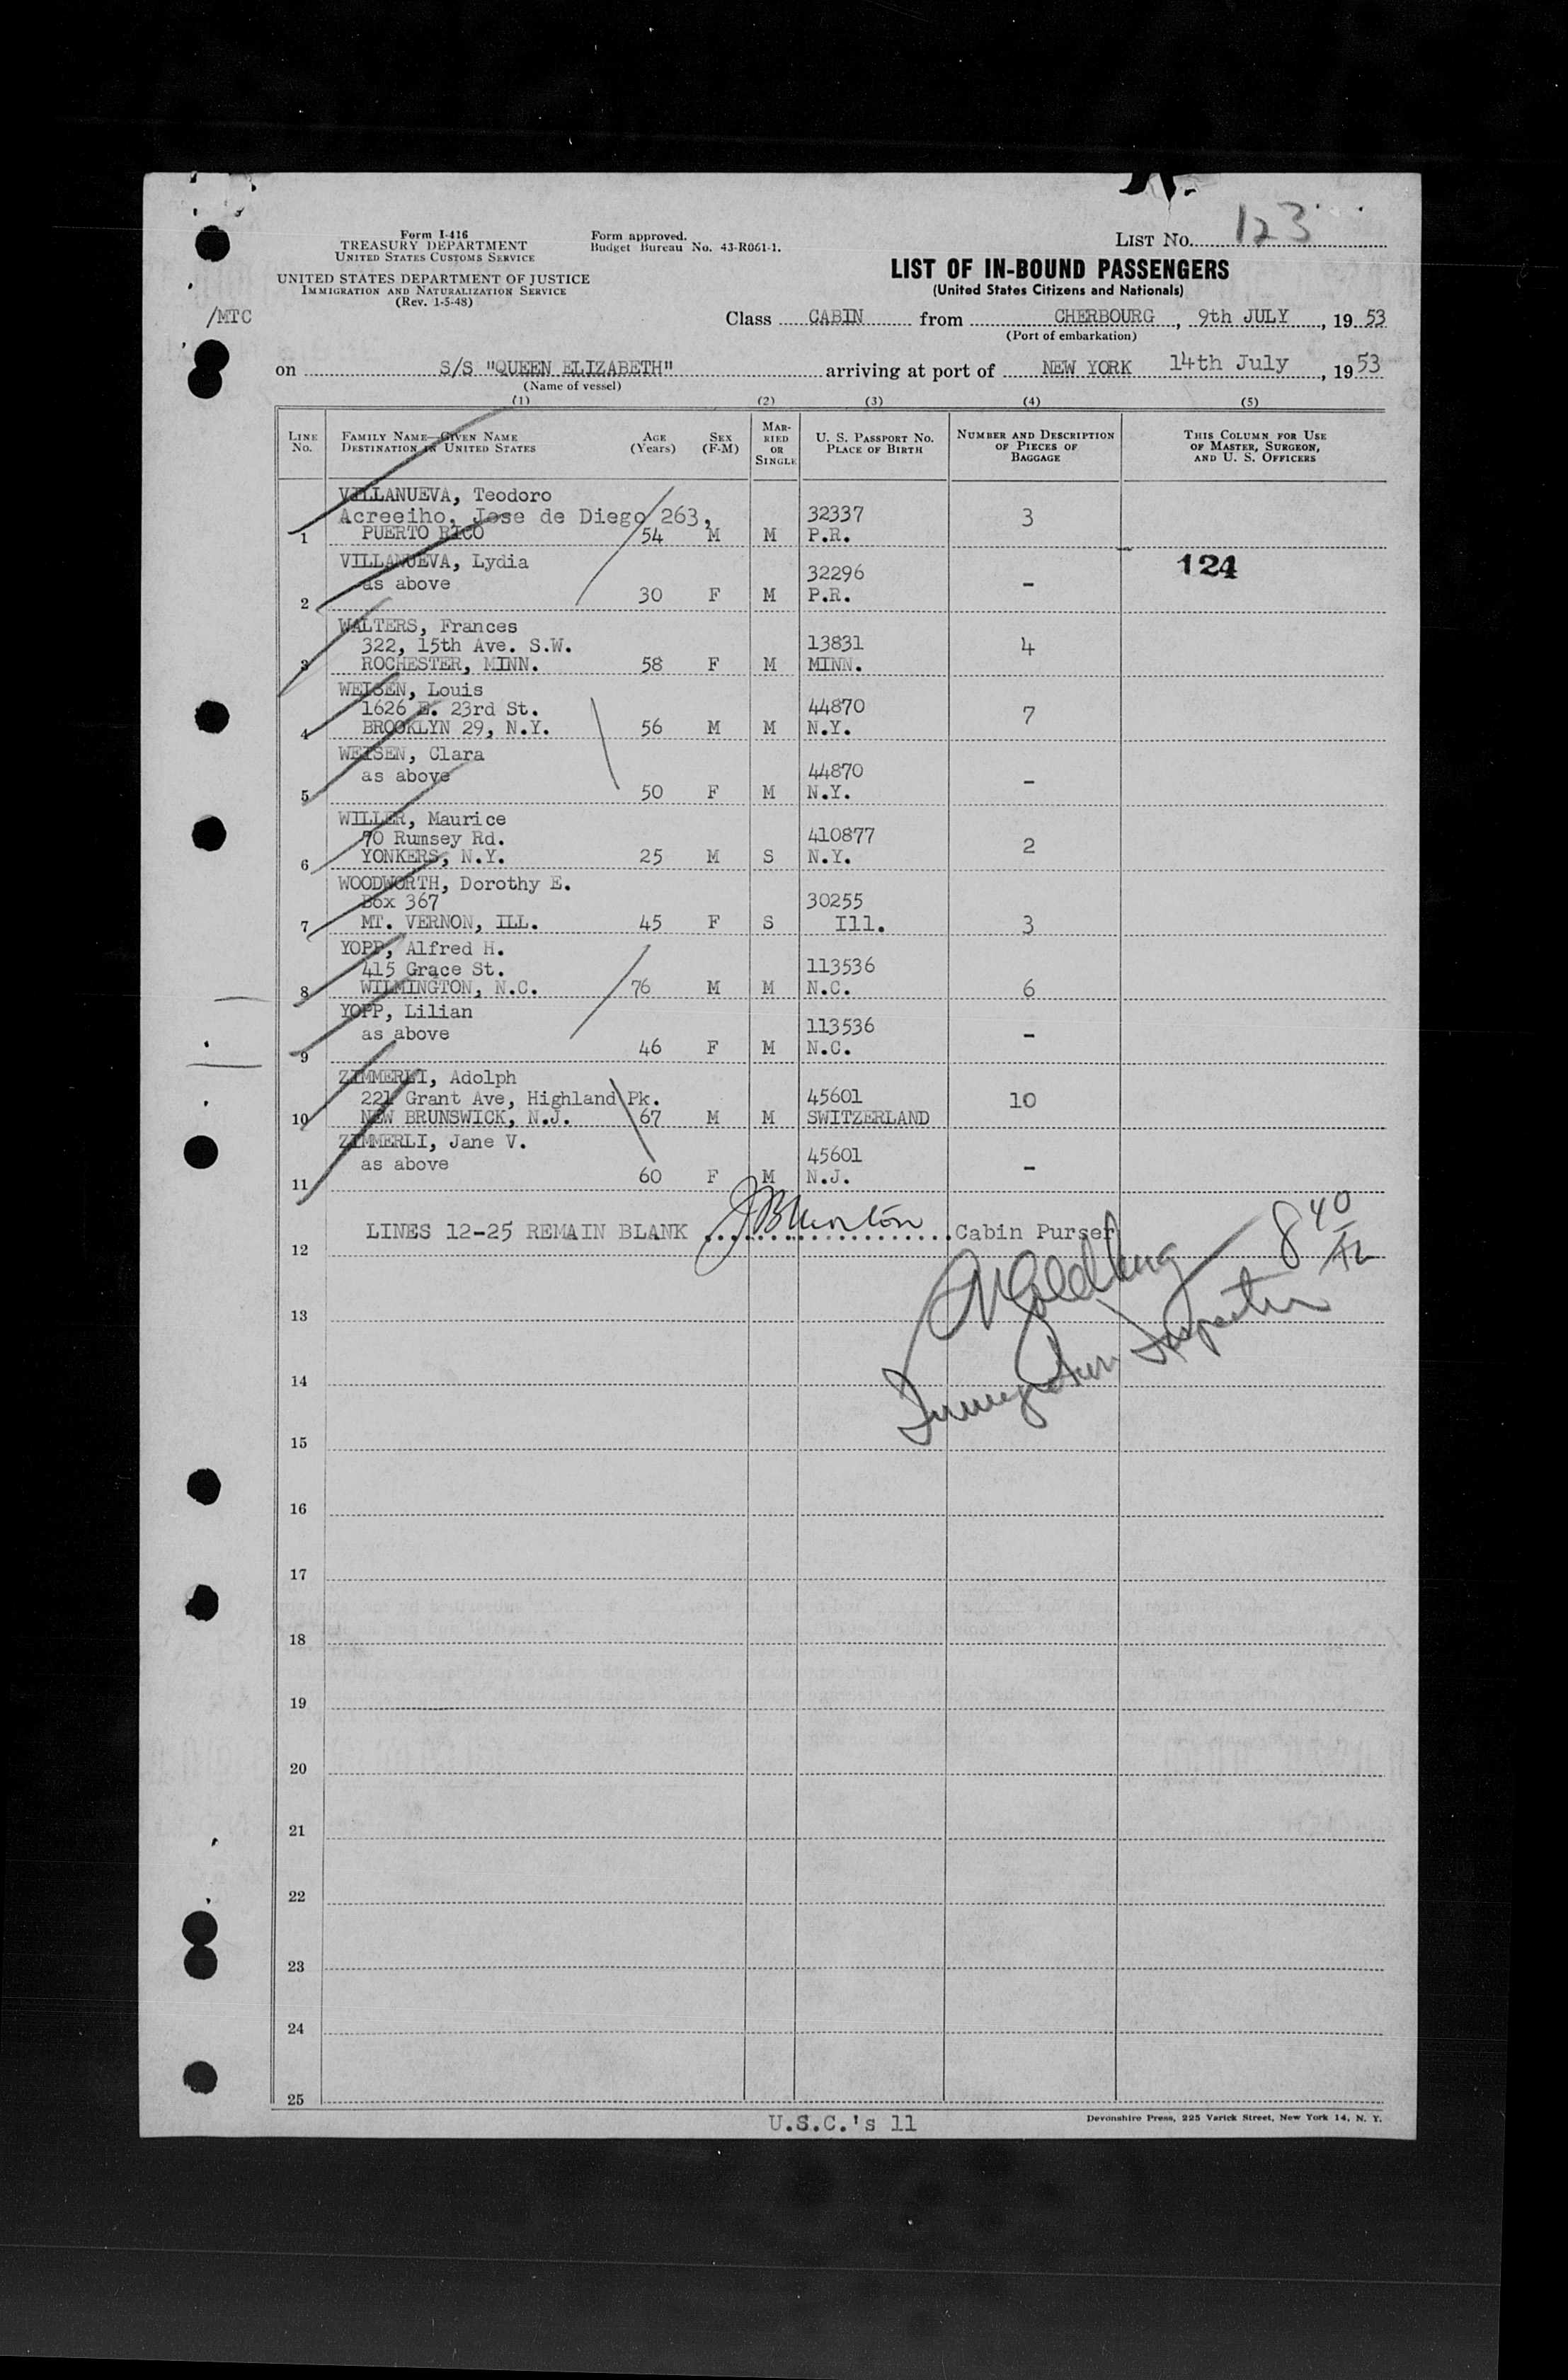 LIST NO. 123
Form I-416
TREASURY DEPARTMENT
UNITED STATES CUSTOMS SERVICE
Form approved.
Budget Bureau No. 43-R061-1.
UNITED STATES DEPARTMENT OF JUSTICE
IMMIGRATION AND NATURALIZATION SERVICE
(Rev. 1-5-48)
LIST OF IN-BOUND PASSENGERS
(United States Citizens and Nationals)
/MTC
Class CABIN from CHERBOURG, 9th JULY, 1953
(Port of embarkation)
on S/S "QUEEN ELIZABETH" arriving at port of NEW YORK 14th July, 1953
(Name of vessel)
(1) (2) (3) (4) (5)
LINE NO.
FAMILY NAME—GIVEN NAME
DESTINATION IN UNITED STATES
AGE (Years)
SEX (F-M)
MARRIED OR SINGLE
U. S. PASSPORT NO.
PLACE OF BIRTH
NUMBER AND DESCRIPTION OF PIECES OF BAGGAGE
THIS COLUMN FOR USE OF MASTER, SURGEON, AND U. S. OFFICERS
VILLANUEVA, Teodoro
Acreeiho, Jose de Diego 263, 32337 3
1 PUERTO RICO 54 M M P.R.
124
VILLANUEVA, Lydia 32296
as above -
2 30 F M P.R.
WALTERS, Frances
322, 15th Ave. S.W. 13831 4
3 ROCHESTER, MINN. 58 F M MINN.
WEISEN, Louis
1626 E. 23rd St. 44870 7
4 BROOKLYN 29, N.Y. 56 M M N.Y.
WEISEN, Clara
as above 44870 -
5 50 F M N.Y.
WILLER, Maurice
70 Rumsey Rd. 410877 2
6 YONKERS, N.Y. 25 M S N.Y.
WOODWORTH, Dorothy E.
Box 367 30255
7 MT. VERNON, ILL. 45 F S Ill. 3
YOPP, Alfred H.
415 Grace St. 113536
8 WILMINGTON, N.C. 76 M M N.C. 6
YOPP, Lilian
as above 113536 -
9 46 F M N.C.
ZIMMERLI, Adolph
221 Grant Ave, Highland Pk. 45601 10
10 NEW BRUNSWICK, N.J. 67 M M SWITZERLAND
ZIMMERLI, Jane V.
as above 45601 -
11 60 F M N.J.
LINES 12-25 REMAIN BLANK Cabin Purser
12
Immigration Inspector
13
14
15
16
17
18
19
20
21
22
23
24
25
U.S.C.'s 11
Devonshire Press, 225 Varick Street, New York 14, N. Y.